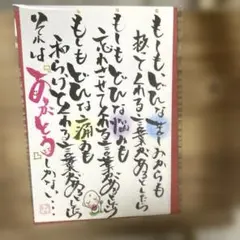 もしも、どんな苦しみからも
救ってくれる言葉があるとしたら
もしも、どんな悩みも
忘れさせてくれる言葉があるとしたら
もしも、どんな痛みも
和らげてくれる言葉があるとしたら
それは ありがとう しかない